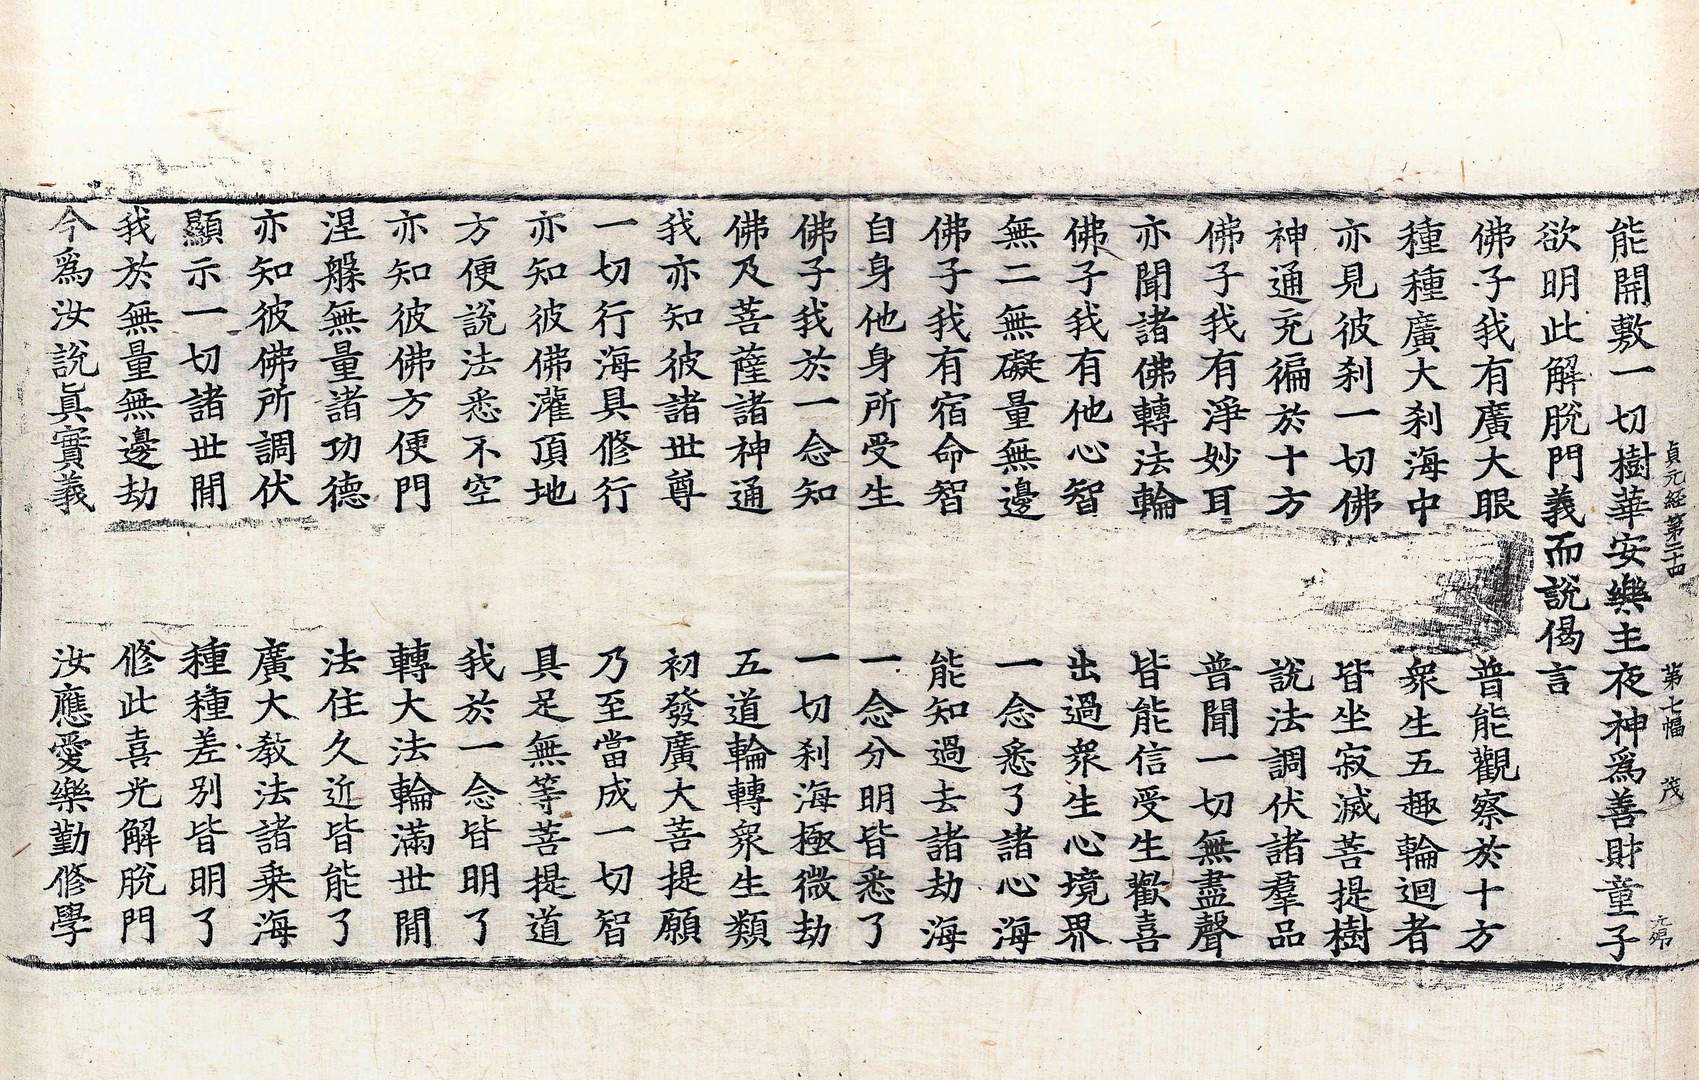 貞元経第二十四　第七幅　茂
能開敷一切樹華安樂主夜神爲善財童子
欲明此解脫門義而說偈言
佛子我有廣大眼　普能觀察於十方
種種廣大刹海中　衆生五趣輪迴者
亦見彼刹一切佛　皆坐寂滅菩提樹
神通充徧於十方　說法調伏諸羣品
佛子我有淨妙耳　普聞一切無盡聲
亦聞諸佛轉法輪　皆能信受生歡喜
佛子我有他心智　出過衆生心境界
無二無礙量無邊　一念悉了諸心海
佛子我有宿命智　能知過去諸劫海
自身他身所受生　一念分明皆悉了
佛子我於一念知　一切刹海極微劫
佛及菩薩諸神通　五道輪轉衆生類
我亦知彼諸世尊　初發廣大菩提願
一切行海具修行　乃至當成一切智
亦知彼佛灌頂地　具足無等菩提道
方便說法悉不空　我於一念皆明了
亦知彼佛方便門　轉大法輪滿世間
涅槃無量諸功德　法住久近皆能了
亦知彼佛所調伏　廣大教法諸乘海
顯示一切諸世間　種種差別皆明了
我於無量無邊劫　修此喜光解脫門
今爲汝說眞實義　汝應愛樂勤修學